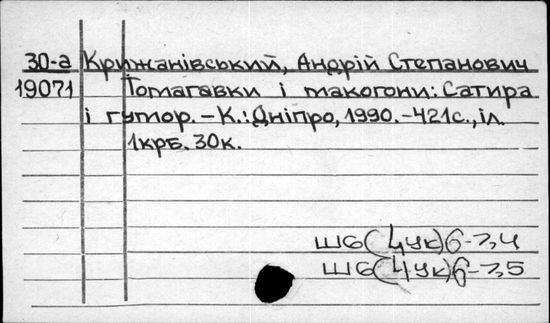 30-а Крижанівський, Андрій Степанович
19071 Томагавки і макогони: Сатира
і гумор. – К.: Дніпро, 1990. – 421с., іл.
1крб. 30к.
Ш6(4Ук)6-7,4
Ш6(4Ук)6-7,5